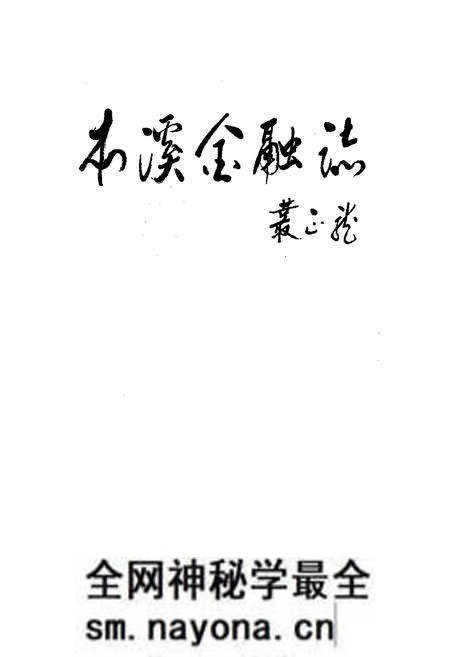 本溪金融誌
叢正龍
全网神秘学最全
sm.nayona.cn